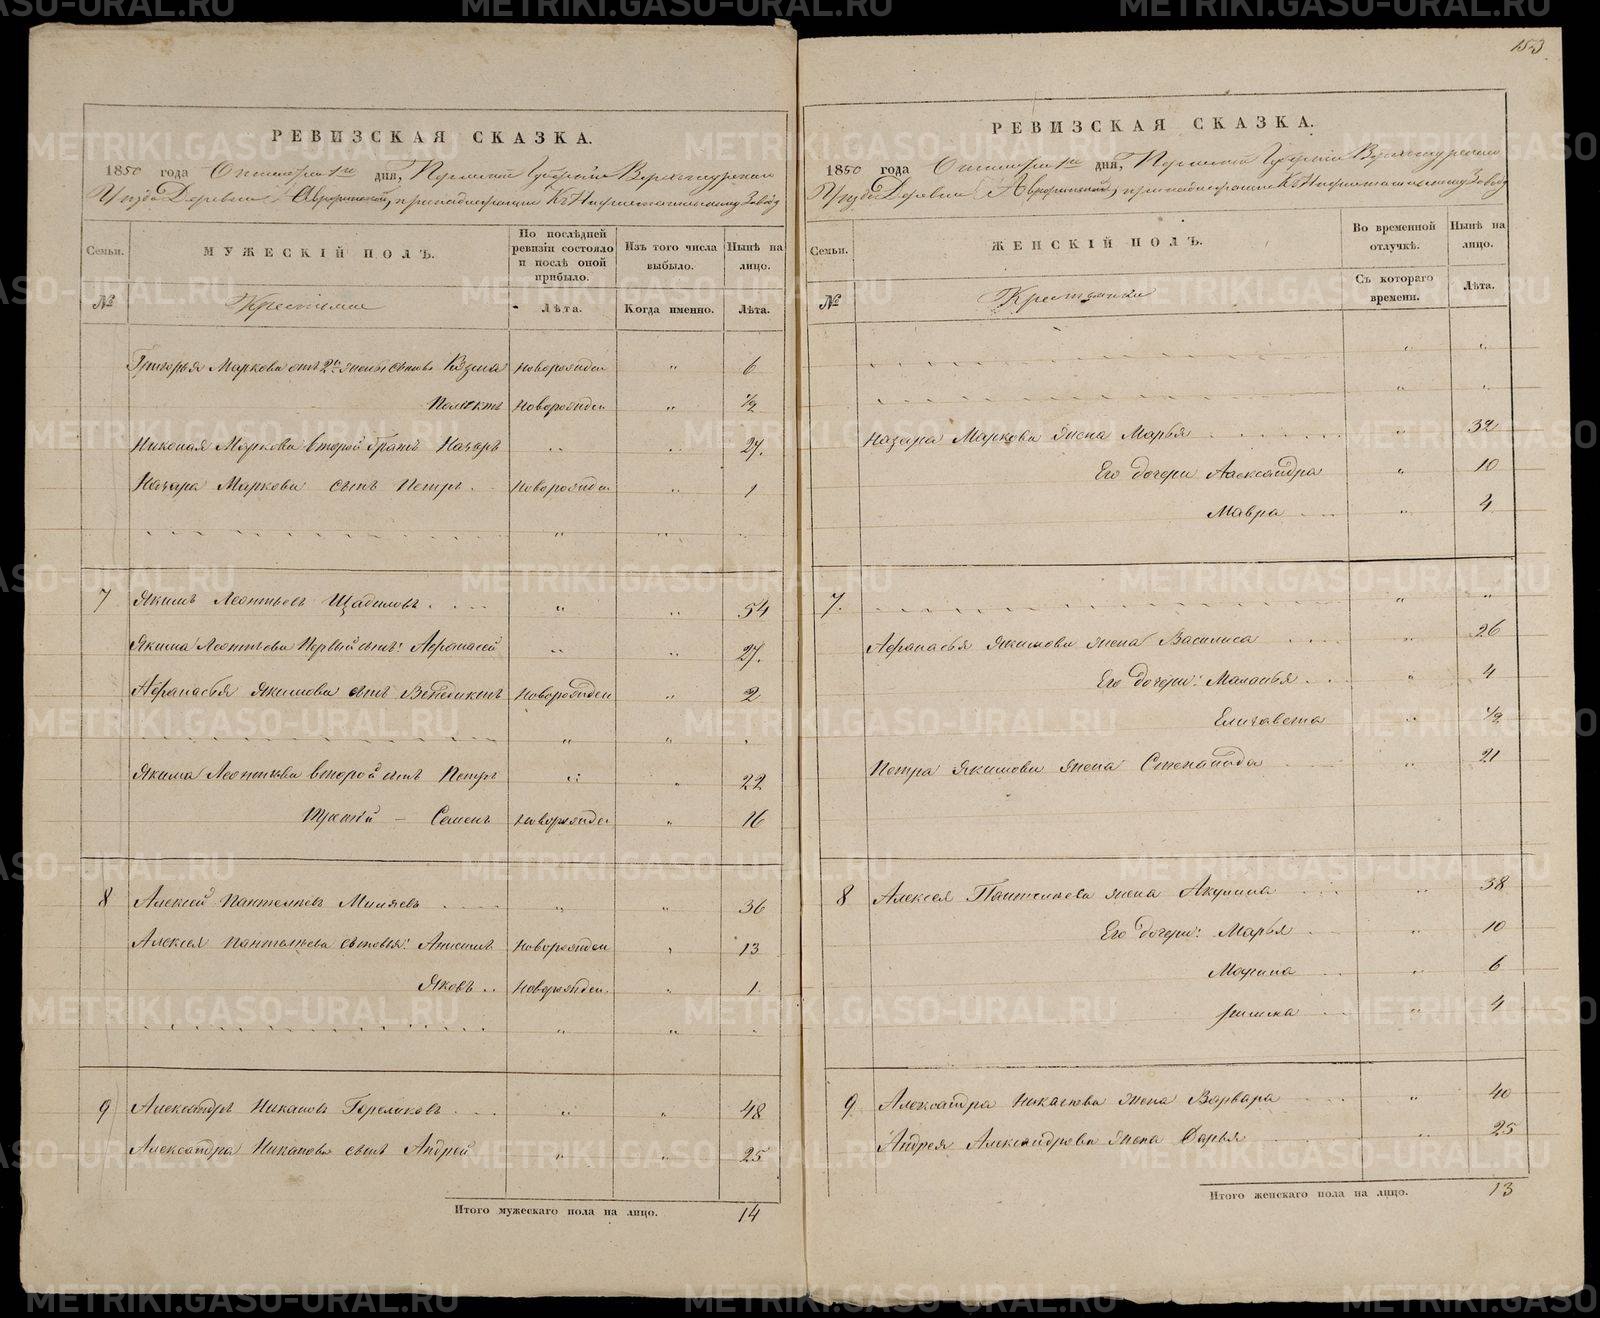 РЕВИЗСКАЯ СКАЗКА.
1850 года Октября 1го дня, Пермской Губернии Верхотурскаго
Уезда Деревни принадлежащей Къ Нижнетагильскому Заводу
Семьи.
МУЖЕСКІЙ ПОЛЪ.
По послѣдней ревизіи состояло и послѣ оной прибыло.
Изъ того числа выбыло.
Нынѣ на лицо.
№
Крестьяне
Лѣта.
Когда именно.
Лѣта.
Григорья Маркова отъ 2й жены сынъ Козма новорожден " 6
новорожден " 1/2
Николая Маркова второй братъ Назаръ " " 27.
Назара Маркова сынъ Петръ новорожден " 1
7 Якимъ Леонтьевъ " " 54
Якима Леонтьева Первый сынъ: Афанасей " " 27.
Афанасья Якимова сынъ Венедиктъ новорожден " 2
Якима Леонтьева второй сынъ Петръ " " 22
Третій — Семенъ новорожден " 16
8 Алексей Пантелѣевъ Миляевъ " " 36
Алексея Пантелѣева сыновья: Анисимъ новорожден " 13
Яковъ новорожден. " 1.
9 Александръ Никановъ Гореликовъ " " 48
Александра Никанова сынъ Андрей " " 25
Итого мужескаго пола на лицо. 14
153
РЕВИЗСКАЯ СКАЗКА.
1850 года Октября 1го дня, Пермской Губерніи Верхотурскаго
Уезда Деревни принадлежащей Къ Нижнетагильскому Заводу
Семьи.
ЖЕНСКІЙ ПОЛЪ.
Во временной отлучкѣ.
Нынѣ на лицо.
№
Крестьянки
Съ котораго времени.
Лѣта.
Назара Маркова жена Марья " 32
Его дочери Александра " 10
Мавра " 4
7.
Афанасья Якимова жена Василиса " 26
Его дочери: Маланья " 4
Елизавета " 1/2
Петра Якимова жена Степанида " 21
8 Алексея Пантелѣева жена Акулина " 38
Его дочери: Марья " 10
" 6
" 4
9 Александра Никанова жена Варвара " 40
Андрея Александрова жена Дарья " 25
Итого женскаго пола на лицо. 13
METRIKI.GASO-URAL.RU